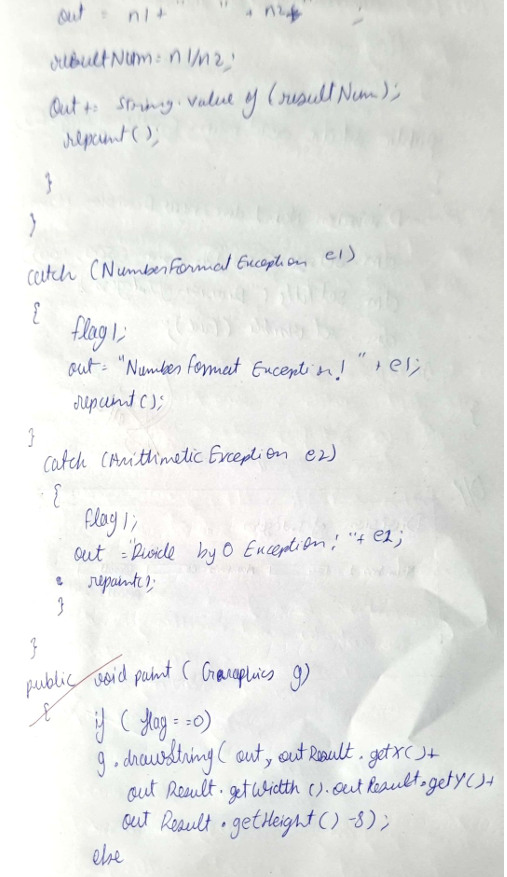 out = n1 + " " + n2 + ;
resultNum = n1/n2;
Out += string.value of (resultNum);
repaint();
}
}
catch (NumberFormat Exception e1)
{
flag 1;
out = "Number format Exception! " + e1;
repaint();
}
catch (Arithmetic Exception e2)
{
flag 1;
out = "Divide by 0 Exception! "+ e2;
repaint();
}
}
public void paint ( Graraphics g)
{
if ( flag = =0)
g. drawString( out, outResult. getX()+
out Result. getWidth (). out Result. getY()+
out Result. getHeight() -8);
else